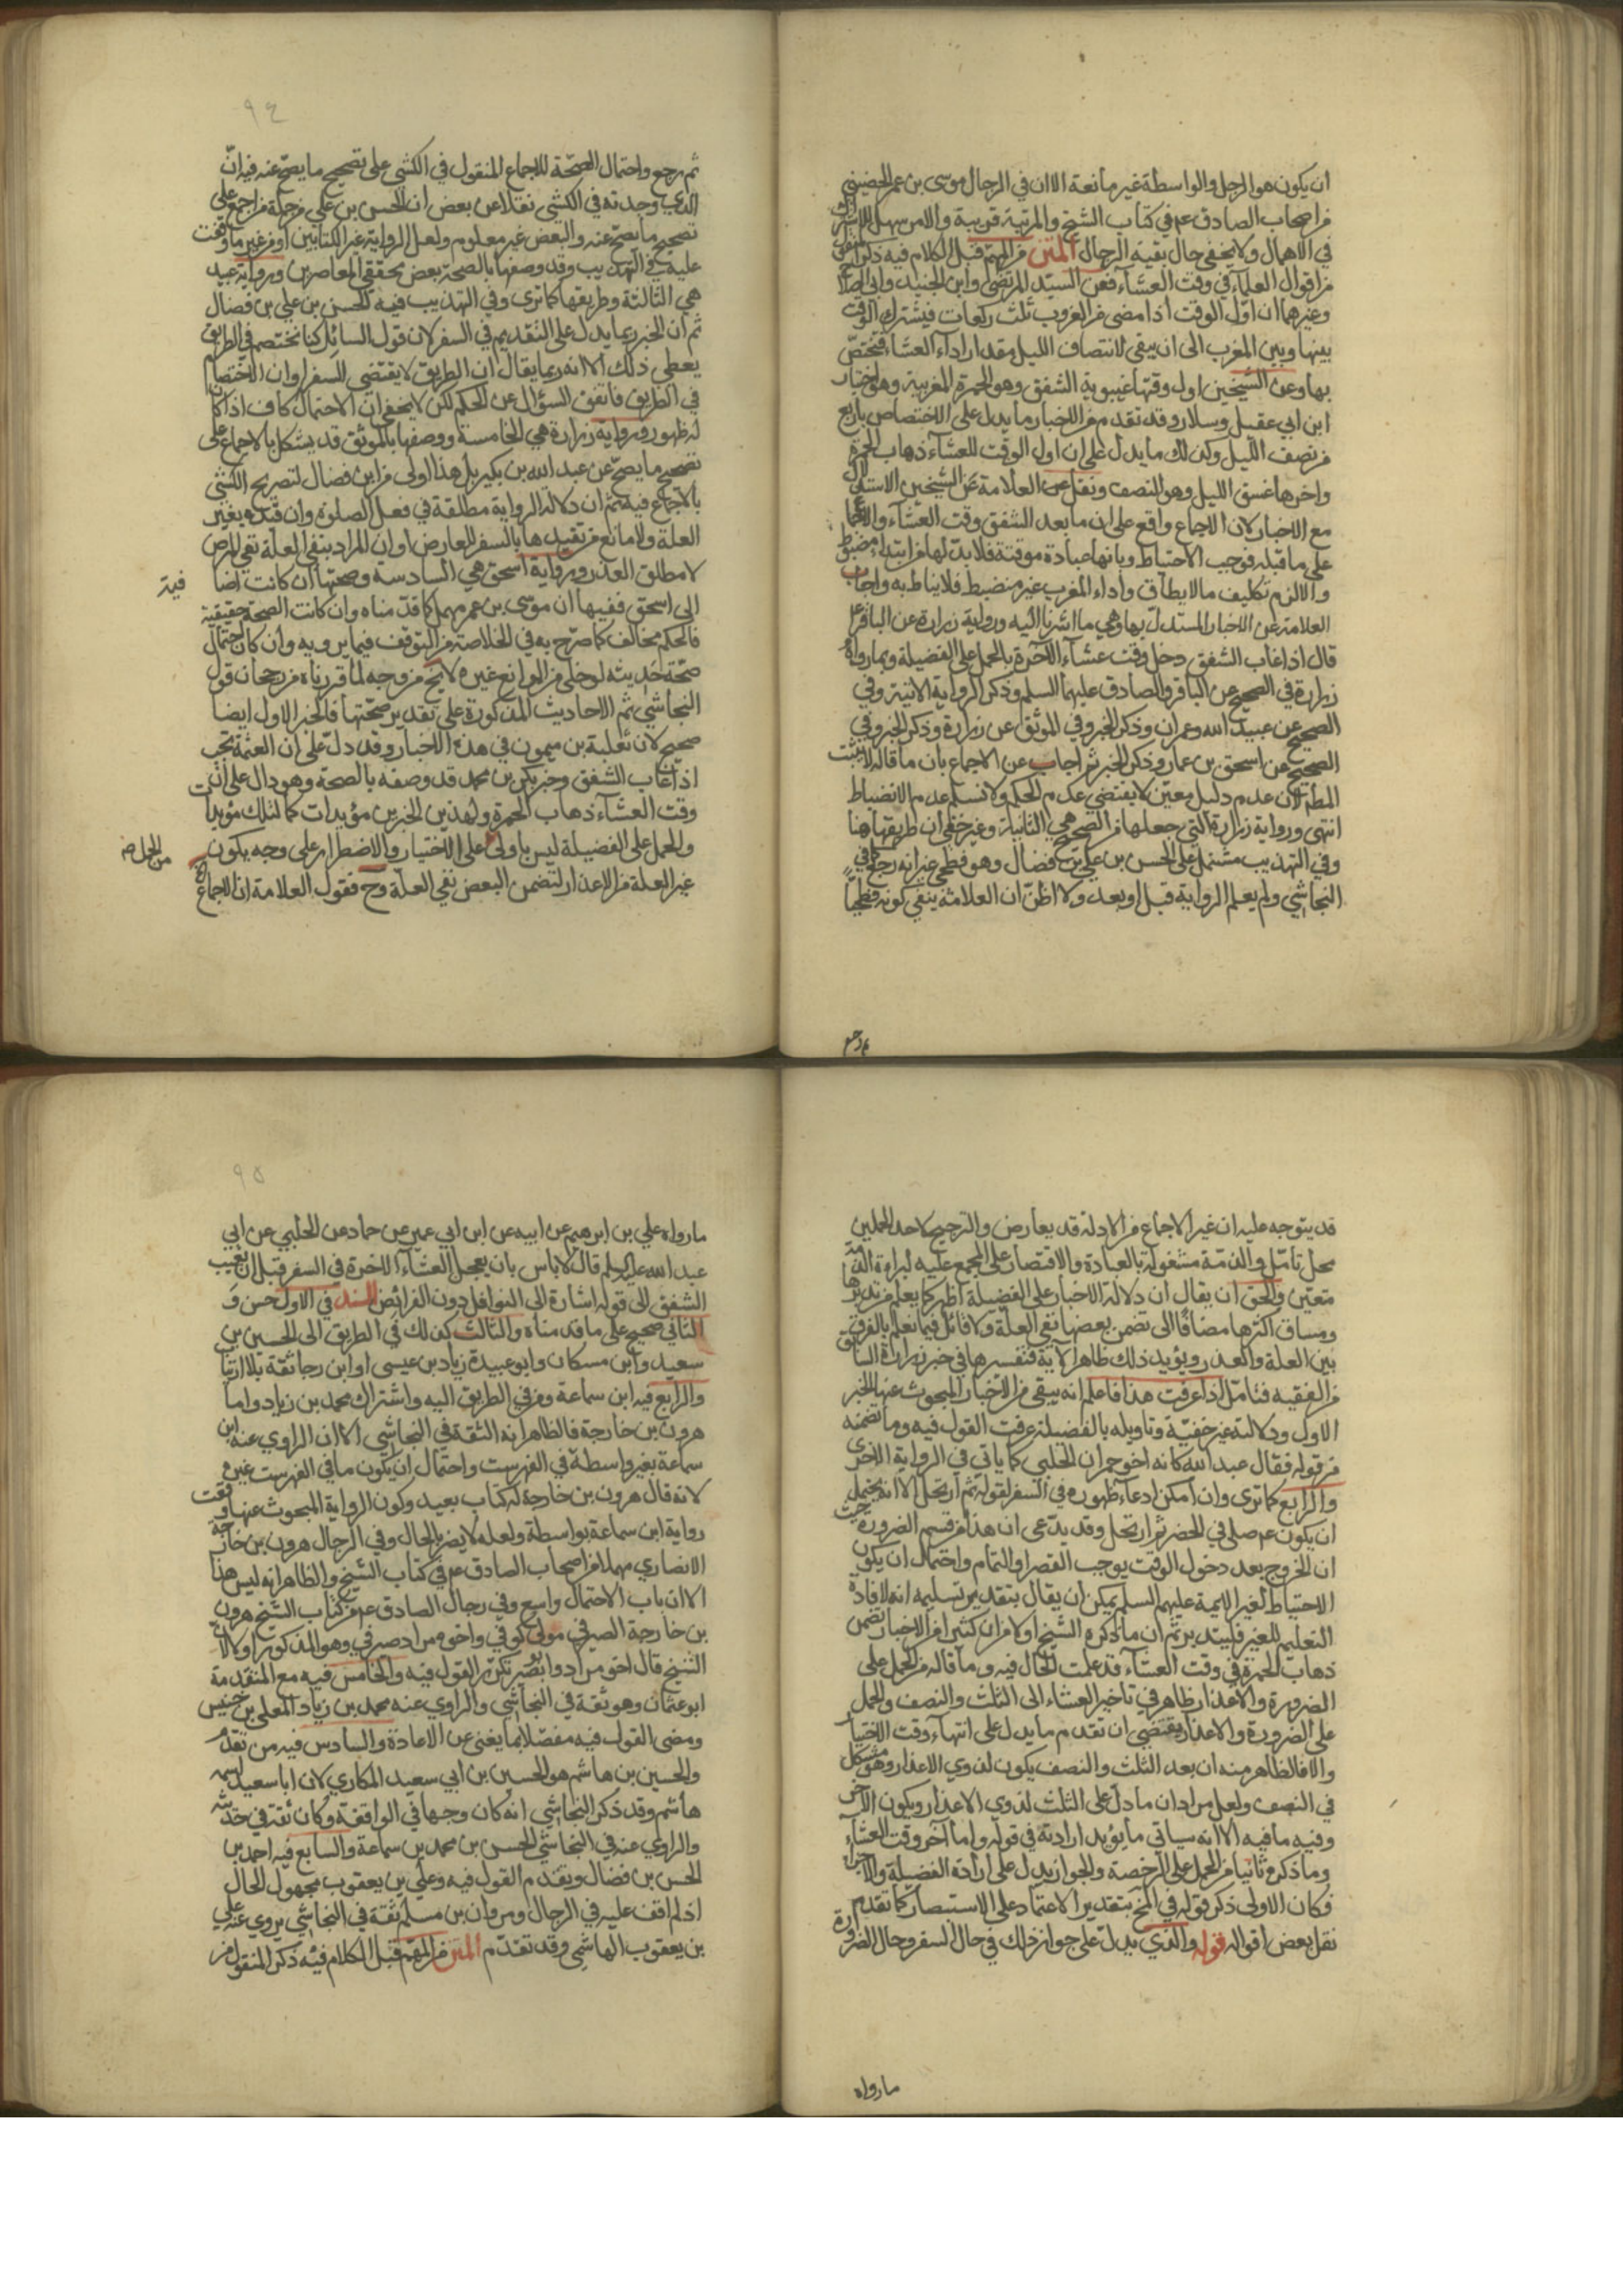 ان يكون هو الرجل والواسطة غير مانعة الا ان في الرجال موسى بن عمر الحضيني
من اصحاب الصادق عم في كتاب الشيخ والمرتبة قريبة والامر سهل
في الاهمال ولا يخفى حال بقية الرجال المتن من المهم قبل الكلام فيه ذكر
من اقوال العلماء في وقت العشاء فعن السيد المرتضى وابن الجنيد وابي الصلاح
وغيرهما ان اول الوقت اذا مضى من الغروب ثلث ركعات فيشترك الوقت
بينها وبين المغرب الى ان يبقى لانتصاف الليل مقدار اداء العشاء فتختص
بها وعن الشيخين اول وقتها غيبوبة الشفق وهو الحمرة المغربية وهو اختيار
ابن ابي عقيل وسلار وقد تقدم من الاخبار ما يدل على الاختصاص باربع
من نصف الليل وكذلك ما يدل على ان اول الوقت للعشاء ذهاب الحمرة
واخرها غسق الليل وهو النصف ونقل عن العلامة عن الشيخين الاستدلال
مع الاخبار لان الاجماع واقع على ان ما بعد الشفق وقت العشاء ولا اجماع
على ما قبله فوجب الاحتياط وبانها عبادة موقتة فلا بد لها من ابتداء مضبوط
والا لزم تكليف ما لا يطاق واداء المغرب غير منضبط فلا يناط به واجاب
العلامة عن الاخبار المستدل بها وهي ما اشرنا اليه ورواية زرارة عن الباقر ع
قال اذا غاب الشفق دخل وقت عشاء الآخرة بالحمل على الفضيلة وبما رواه
زرارة في الصحيح عن الباقر والصادق عليهما السلم وذكر الرواية الاتية وفي
الصحيح عن عبيد الله وعمران وذكر الخبر وفي الموثق عن زرارة وذكر الخبر وفي
الصحيح عن اسحق بن عمار وذكر الخبر ثم اجاب عن الاجماع بان ما قاله لا يثبت
المطم لان عدم دليل معين لا يقتضي عدم الحكم ولا نسلم عدم الانضباط
انتهى ورواية زرارة التي جعلها من الصحيح هي الثانية وغير خفي ان طريقها هنا
وفي التهذيب مشتمل على الحسن بن علي بن فضال وهو فطحي غير انه رجع كما في
النجاشي ولم يعلم الرواية قبل او بعد ولا اظن ان العلامة ينفي كونه فطحيا
ثم رجع
٩٤
ثم رجع واحتمال الصحة للاجماع المنقول في الكشي على تصحيح ما يصح عنه فيه ان
الذي وجدته في الكشي نقلا عن بعض ان الحسن بن علي من جملة من اجمع على
تصحيح ما يصح عنه والبعض غير معلوم ولعل الرواية غير الكتابين او من غير ما وقفت
عليه في التهذيب وقد وصفها بالصحة بعض محققي المعاصرين ورواية عبيد
هي الثالثة وطريقها كما ترى وفي التهذيب فيه الحسن بن علي بن فضال
ثم ان الخبر ربما يدل على التقديم في السفر لان قول السائل كنا نختصم في الطريق
يعطي ذلك الا انه ربما يقال ان الطريق لا يقتضي السفر او ان الاختصام
في الطريق فاتفق السؤال عن الحكم لكن لا يخفى ان الاحتمال كاف اذا كان
له ظهور ورواية زرارة هي الخامسة ووصفها بالموثق قد يشكل بالاجماع على
تصحيح ما يصح عن عبد الله بن بكير بل هذا اولى من ابن فضال لتصريح الكشي
بالاجماع فيه ثم ان دلالة الرواية مطلقة في فعل الصلوة وان قيده بغير
العلة ولا مانع من تقييدها بالسفر للمعارض او ان المراد بنفي العلة نفي المرض
لا مطلق العذر ورواية اسحق هي السادسة وصحتها ان كانت اضا فية
الى اسحق ففيها ان موسى بن عمر مهمل كما قدمناه وان كانت الصحة حقيقية
فالحكم مخالف كما صرح به في الخلاصة من التوقف فيما يرويه وان كان احتمال
صحة حديثه لو خلى من الموانع غيره لا يخ من وجه لما قررناه من رجحان قول
النجاشي ثم الاحاديث المذكورة على تقدير صحتها فالخبر الاول ايضا
صحيح لان ثعلبة بن ميمون في هذه الاخبار وقد دل على ان العتمة تجب
اذا غاب الشفق وخبر بكر بن محمد قد وصفه بالصحة وهو دال على ان
وقت العشاء ذهاب الحمرة ولهذين الخبرين مؤيدات كما لتلك مؤيدا
والحمل على الفضيلة ليس باولى من الحمل صح على الاختيار والاضطرار على وجه يكون
غير العلة من الاعذار لتضمن البعض نفي العلة وح فقول العلامة ان الاجماع
قد يتوجه عليه ان غير الاجماع من الادلة قد يعارض والترجيح لاحد الحملين
محل تامل والذمة مشغولة بالعبادة والاقتصار على المجمع عليه لبراءة الذمة
متعين والحق ان يقال ان دلالة الاخبار على الفضيلة اظهر كما يعلم من تدبرها
ومساق اكثرها مضافا الى تضمن بعضها نفي العلة ولا قائل فيما نعلم بالفرق
بين العلة والعذر ويؤيد ذلك ظاهر الآية فتفسيرها في خبر زرارة السابق
من الفقيه فتامل اذا عرفت هذا فاعلم انه يبقى من الاخبار المبحوث عنها الخبر
الاول ودلالته غير خفية وتاويله بالفضيلة عرفت القول فيه وما تضمنه
من قوله فقال عبد الله كانه اخو حمران الحلبي كما ياتي في الرواية الاخرى
والرابع كما ترى وان امكن ادعاء ظهوره في السفر لقوله ثم ارتحل الا انه يحتمل
ان يكون عم صلى في الحضر ثم ارتحل وقد يدعى ان هذا من قسم الضرورة حيث
ان الخروج بعد دخول الوقت يوجب القصر او التمام واحتمال ان يكون
الاحتياط لغير الايمة عليهم السلم يمكن ان يقال بتقدير تسليمه انه لافادة
التعليم للغير فليتدبر ثم ان ما ذكره الشيخ اولا من ان كثيرا من الاخبار تضمن
ذهاب الحمرة في وقت العشاء قد علمت الحال فيه وما قاله من الحمل على
الضرورة والاعذار ظاهر في تاخير العشاء الى الثلث والنصف والحمل
على الضرورة والاعذار يقتضي ان تقدم ما يدل على انتهاء وقت الاختيار
والا فالظاهر منه ان بعد الثلث والنصف يكون لذوي الاعذار وهو مشكل
في النصف ولعل مراده ان ما دل على الثلث لذوي الاعذار ويكون الآخر
وفيه ما فيه الا انه سياتي ما يؤيد ارادته في قوله واما آخر وقت العشاء
وما ذكره ثانيا من الحمل على الرخصة والجواز يدل على ارادة الفضيلة والاجزاء
فكان الاولى ذكر قوله في المخ بتقدير الاعتماد على الاستبصار كما تقدم
نقل بعض اقواله قوله والذي يدل على جواز ذلك في حال السفر وحال الضرورة
ما رواه
٩٥
ما رواه علي بن ابرهيم عن ابيه عن ابن ابي عمير عن حماد عن الحلبي عن ابي
عبد الله عليه السلم قال لا باس بان يعجل العشاء الآخرة في السفر قبل ان يغيب
الشفق الى قوله اشارة الى النوافل دون الفرائض السند في الاول حسن و
الثاني صحيح على ما قدمناه والثالث كذلك في الطريق الى الحسين بن
سعيد وابن مسكان وابو عبيدة زياد بن عيسى او ابن رجا ثقة بلا ارتياب
والرابع فيه ابن سماعة ومن في الطريق اليه واشتراك محمد بن زياد واما
هرون بن خارجة فالظاهر انه الثقة في النجاشي الا ان الراوي عنه ابن
سماعة بغير واسطة في الفهرست واحتمال ان يكون ما في الفهرست غيره
لانه قال هرون بن خارجة له كتاب بعيد وكون الرواية المبحوث عنها وقعت
رواية ابن سماعة بواسطة ولعله لا يضر بالحال وفي الرجال هرون بن خارجة
الانصاري مهملا من اصحاب الصادق عم في كتاب الشيخ والظاهر انه ليس هذا
الا ان باب الاحتمال واسع وفي رجال الصادق عم من كتاب الشيخ هرون
بن خارجة الصيرفي مولى كوفي واخوه مراد صيرفي وهو المذكور اولا لان
الشيخ قال اخو مراد وابو بصير تكرر القول فيه والخامس فيه مع المتقدمة
ابو عثمان وهو ثقة في النجاشي والراوي عنه محمد بن زياد المعلى بن خنيس
ومضى القول فيه مفصلا بما يغني عن الاعادة والسادس فيه من تقدم
والحسين بن هاشم هو الحسين بن ابي سعيد المكاري لان ابا سعيد اسمه
هاشم وقد ذكر النجاشي انه كان وجها في الواقفة وكان ثقة في حديثه
والراوي عنه في النجاشي الحسن بن محمد بن سماعة والسابع فيه احمد بن
الحسن بن فضال وتقدم القول فيه وعلي بن يعقوب مجهول الحال
اذ لم اقف عليه في الرجال ومروان بن مسلم ثقة في النجاشي يروي عنه علي
بن يعقوب الهاشمي وقد تقدم المتن من المهم قبل الكلام فيه ذكر المنقول من